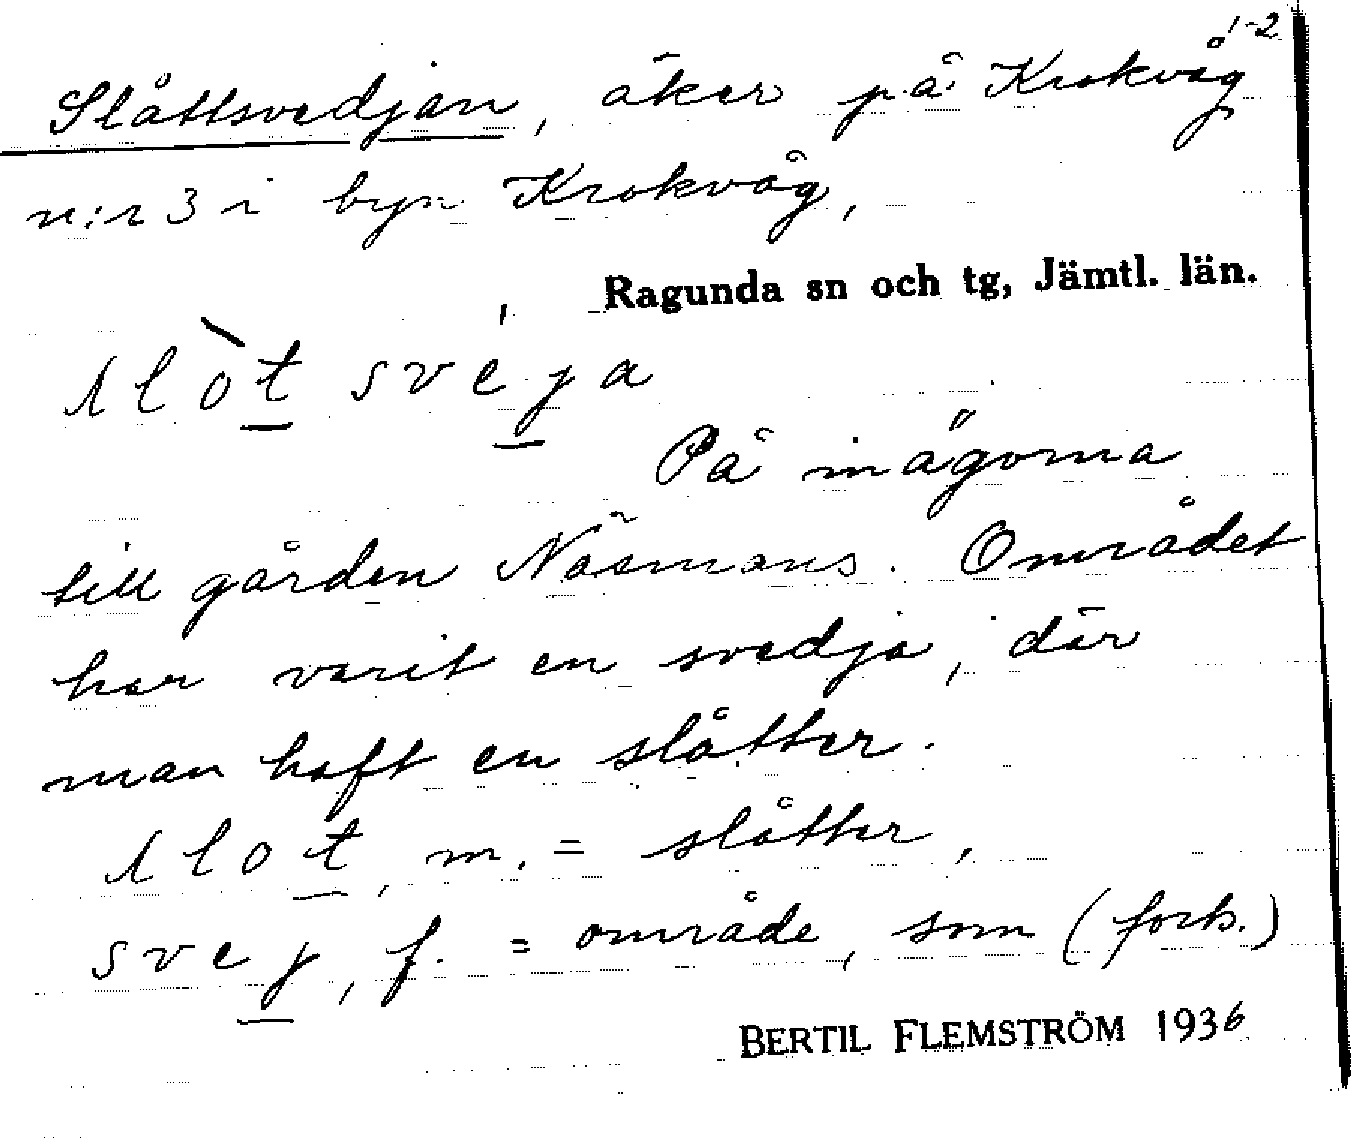 1-2
Slåttsvedjan, åker på Krokvåg
n:r 3 i byn Krokvåg,
Ragunda sn och tg, Jämtl. län.
slòt sveja
På inägorna
till gården Näsmans. Området
har varit en svedja, där
man haft en slåtter.
slot, m. = slåtter,
svej, f. = område, som (forts.)
BERTIL FLEMSTRÖM 1936